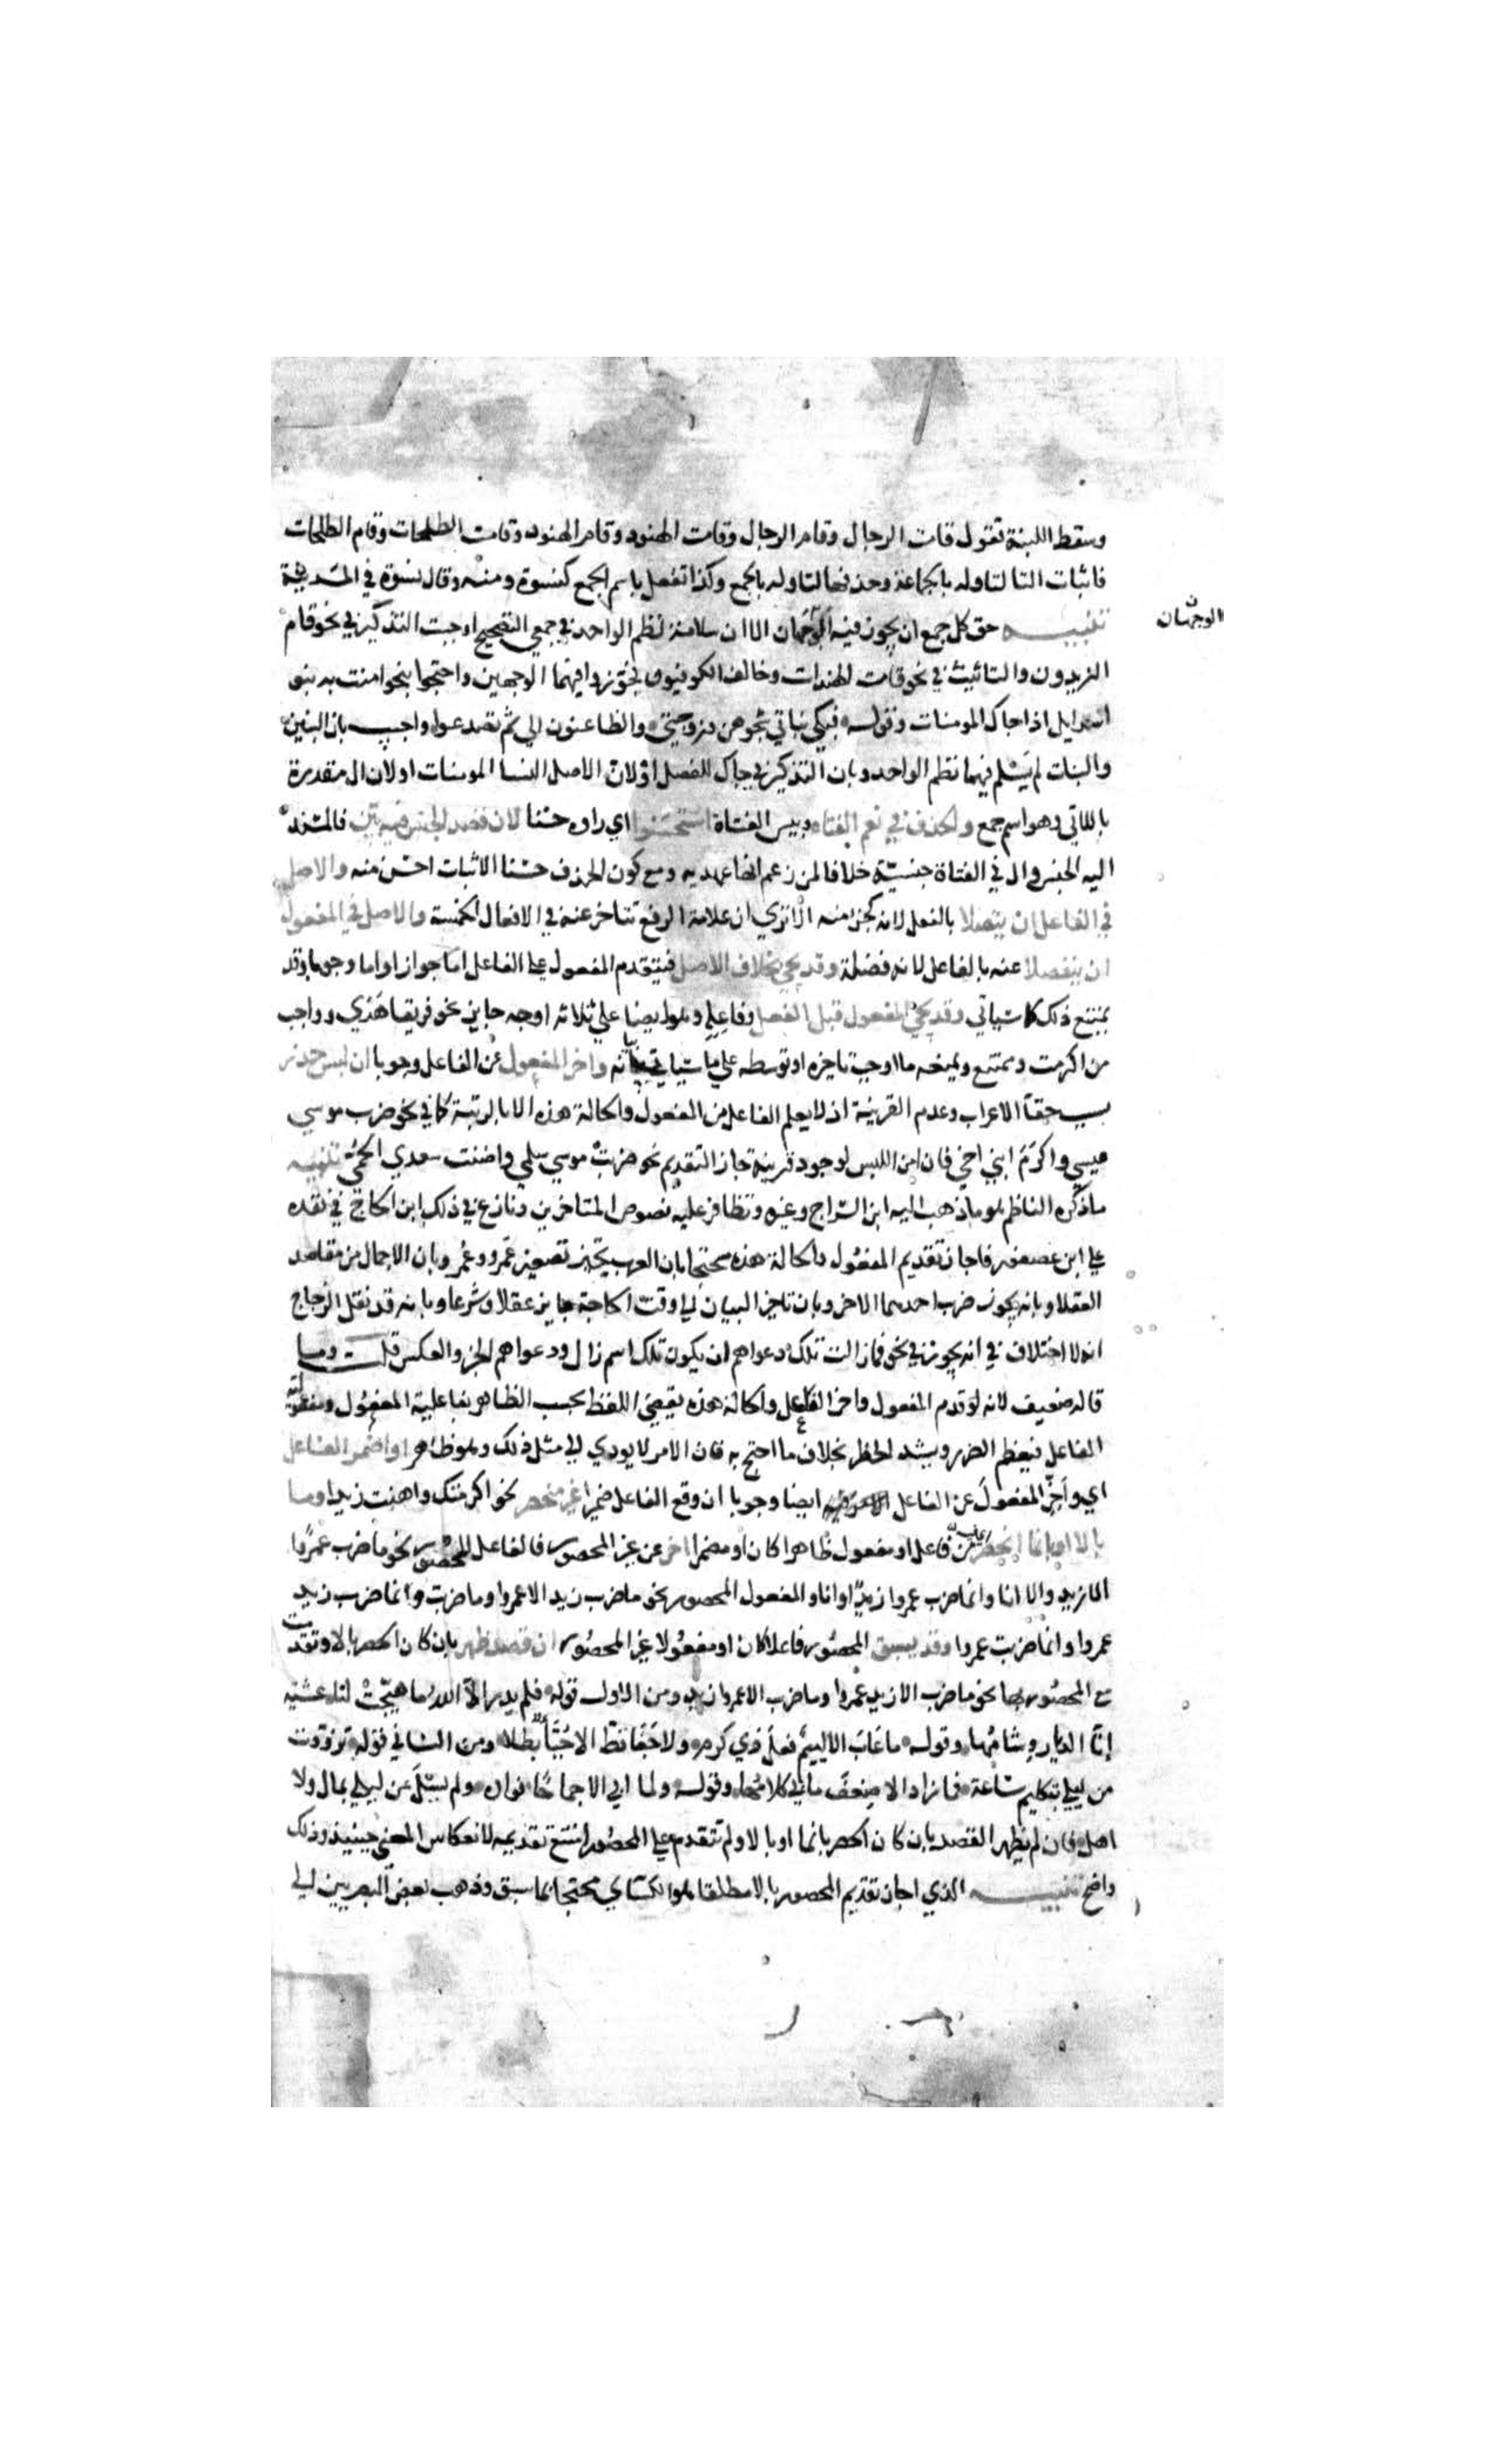 وسقط اللبنة تقول قامت الرجال وقام الرجال وقامت الهنود وقام الهنود وقامت الطلحات وقام الطلحات
فاثبات التا لتاوله بالجماعة وحذفها لتاوله بالجمع وكذا تفعل باسم الجمع كنسوة ومنه وقال نسوة في المدينة
تنبيه حق كل جمع ان يجوز فيه الوجهان الا ان سلامة نظم الواحد في جمعي التصحيح اوجبت التذكير في نحو قام
الوجهان
الزيدون والتانيث في نحو قامت الهندات وخالف الكوفيون فجوزوا فيهما الوجهين واحتجوا بنحو امنت به بنو
اسرايل اذا جاك المومنات وقوله فبكى بناتي شجوهن وزوجتي والظاعنون الي ثم تصدعوا واجيب بان البنين
والبنات لم يسلم فيهما نظم الواحد وبان التذكير في جاك للفصل او لان الاصل النسا المومنات او لان ال مقدرة
باللاتي وهو اسم جمع والحذف في نعم الفتاه وبيس الفتاة استحسنوا اي راوه حسنا لان قصد الجنس فيه بين فالمسند
اليه الجنس وال في الفتاة جنسية خلافا لمن زعم انها عهدية ومع كون الحذف حسنا الاثبات احسن منه والاصل
في الفاعل ان يتصلا بالفعل لانه كجزء منه الا تري ان علامة الرفع تتاخر عنه في الافعال الخمسة والاصل في المفعول
ان ينفصلا عنه بالفاعل لانه فضلة وقد يجي بخلاف الاصل فيتقدم المفعول على الفاعل اما جوازا واما وجوبا وقد
يمتنع ذلك كما سياتي وقد يجي المفعول قبل الفعل وفاعله وهو ايضا علي ثلاثة اوجه جايز نحو فريقا هدي وواجب نحو
من اكرمت وممتنع ويمنعه ما اوجب تاخره او توسطه علي ما سياتي بيانه واخر المفعول عن الفاعل وجوبا ان لبس حذر
بسبب خفا الاعراب وعدم القرينة اذ لا يعلم الفاعل من المفعول والحالة هذه الا بالرتبة كما في نحو ضرب موسي
عيسي واكرم ابني اخي فان امن اللبس لوجود قرينة جاز التقديم نحو ضربت موسي سلمي واضنت سعدي الحمي تنبيه
ما ذكره الناظم هو ما ذهب اليه ابن السراج وغيره وتظافر عليه نصوص المتاخرين ونازع في ذلك ابن الحاج في نقده
علي ابن عصفور فاجاز تقديم المفعول والحالة هذه محتجا بان العرب تجيز تصغير عمرو وعمر وبان الاجمال من مقاصد
العقلا وبانه يجوز ضرب احدهما الاخر وبان تاخير البيان لي وقت الحاجة جايز عقلا وشرعا وبانه قد نقل الزجاج
انه لا اختلاف في انه يجوز في نحو فما زالت تلك دعواهم ان يكون تلك اسم زال ودعواهم الخبر والعكس قلت وما
قاله ضعيف لانه لو قدم المفعول واخر الفاعل والحالة هذه يقضي اللفظ بحسب الظاهر بفاعلية المفعول ومفعولية
الفاعل فيعظم الضرر ويشتد الخطر بخلاف ما احتج به فان الامر لا يودي لي مثل ذلك وهو ظاهر او اضمر الفاعل
اي واخر المفعول عن الفاعل ايضا وجوبا ان وقع الفاعل ضميرا غير منحصر نحو اكرمتك واهنت زيدا وما
بالا او بانما انحصر من فاعل او مفعول ظاهرا كان او مضمرا اخر عن غير المحصور فالفاعل المحصور نحو ما ضرب عمرا
الا زيد والا انا وانما ضرب عمروا زيد او انا والمفعول المحصور نحو ما ضرب زيد الا عمروا وما ضربت وانما ضرب زيد
عمروا وانما ضربت عمروا وقد يسبق المحصور فاعلا كان او مفعولا غير المحصور ان قصد ظهر بان كان الحصر بالا وتقدمت
مع المحصور بها نحو ما ضرب الا زيد عمروا وما ضرب الا عمروا زيد ومن الاول قوله فلم يدر الا الله ما هيجت لنا عشية
انا الديار وشامها وقوله ما عاب الا لييم فعل ذي كرم ولا جفا قط الا جبا بطلا ومن الثاني قوله تزودت
من ليلي بتكليم ساعة فما زاد الا ضعف ما بي كلامها وقوله ولما ابي الا جماحا فواده ولم يسل عن ليلي بمال ولا
اهل فان لم يظهر القصد بان كان الحصر بانما او بالا ولم تتقدم علي المحصور امتنع تقديمه لانعكاس المعني حينيذ وذلك
واضح تنبيه الذي اجاز تقديم المحصور بالا مطلقا هو الكساي محتجا بما سبق وذهب بعض البصريين لي